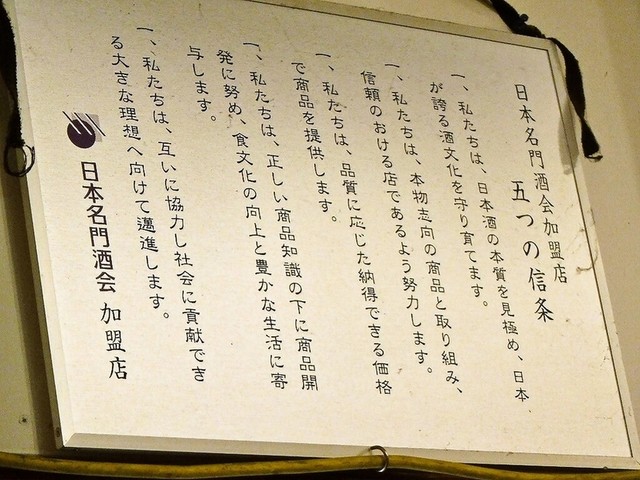 日本名門酒会加盟店
五つの信条
一、私たちは、日本酒の本質を見極め、日本
が誇る酒文化を守り育てます。
一、私たちは、本物志向の商品と取り組み、
信頼のおける店であるよう努力します。
一、私たちは、品質に応じた納得できる価格
で商品を提供します。
一、私たちは、正しい商品知識の下に商品開
発に努め、食文化の向上と豊かな生活に寄
与します。
一、私たちは、互いに協力し社会に貢献でき
る大きな理想へ向けて邁進します。
日本名門酒会 加盟店